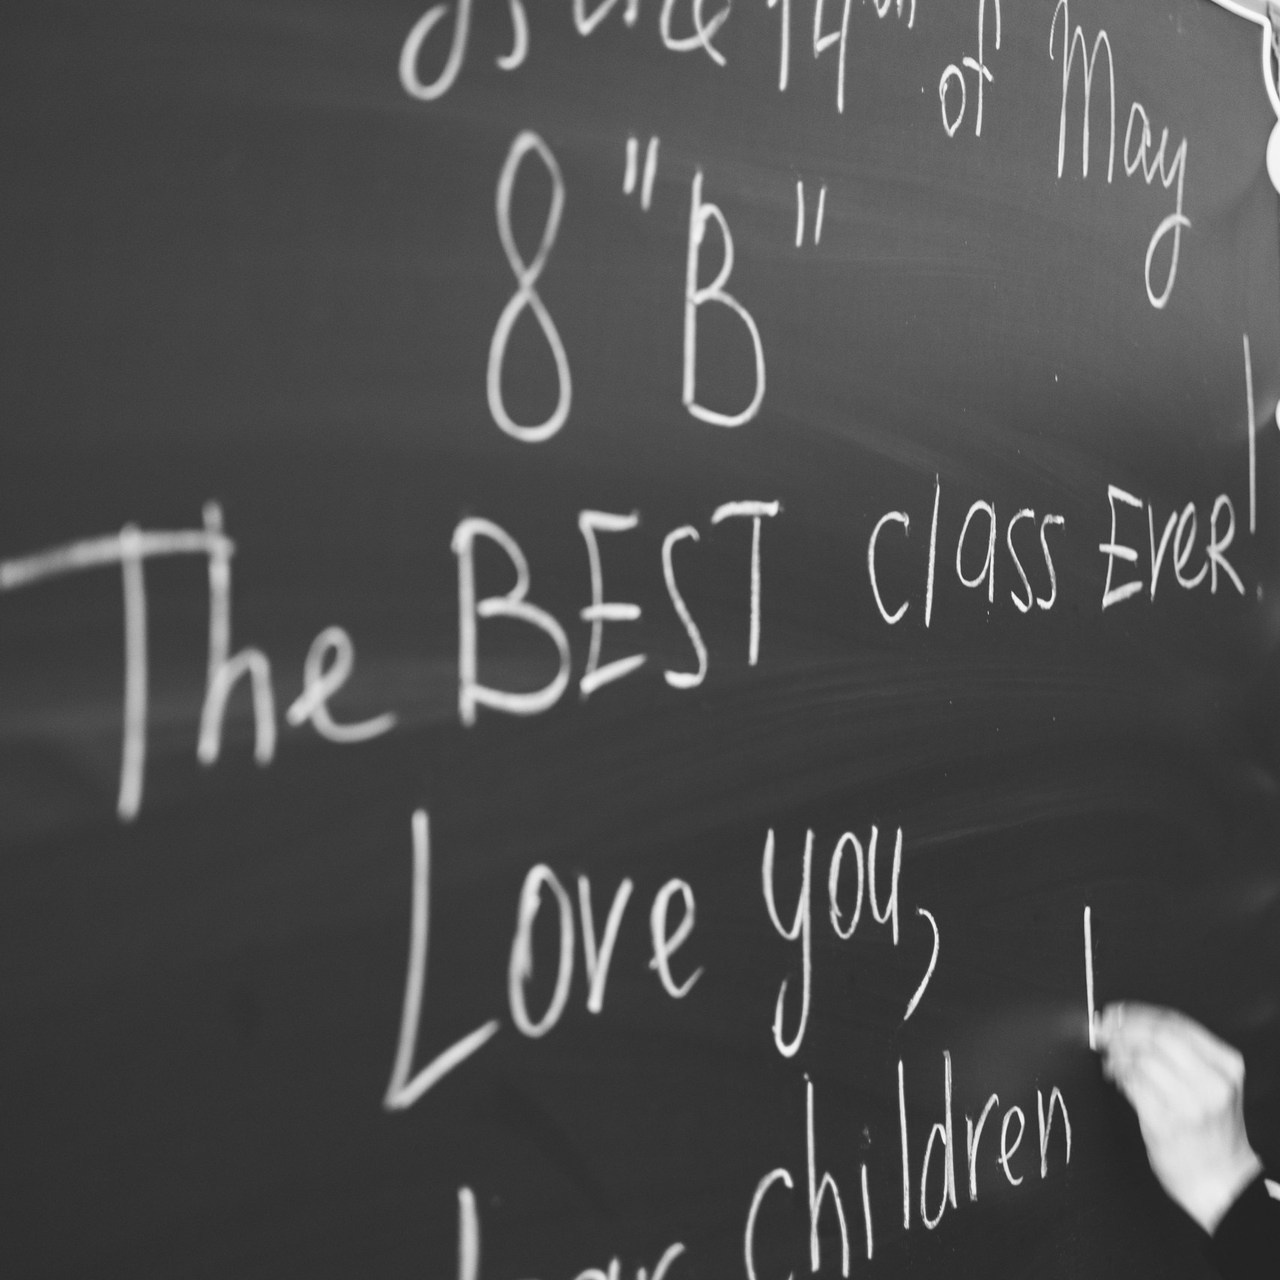 is the 14th of May
8 "B"
The BEST class Ever!
Love you,
children